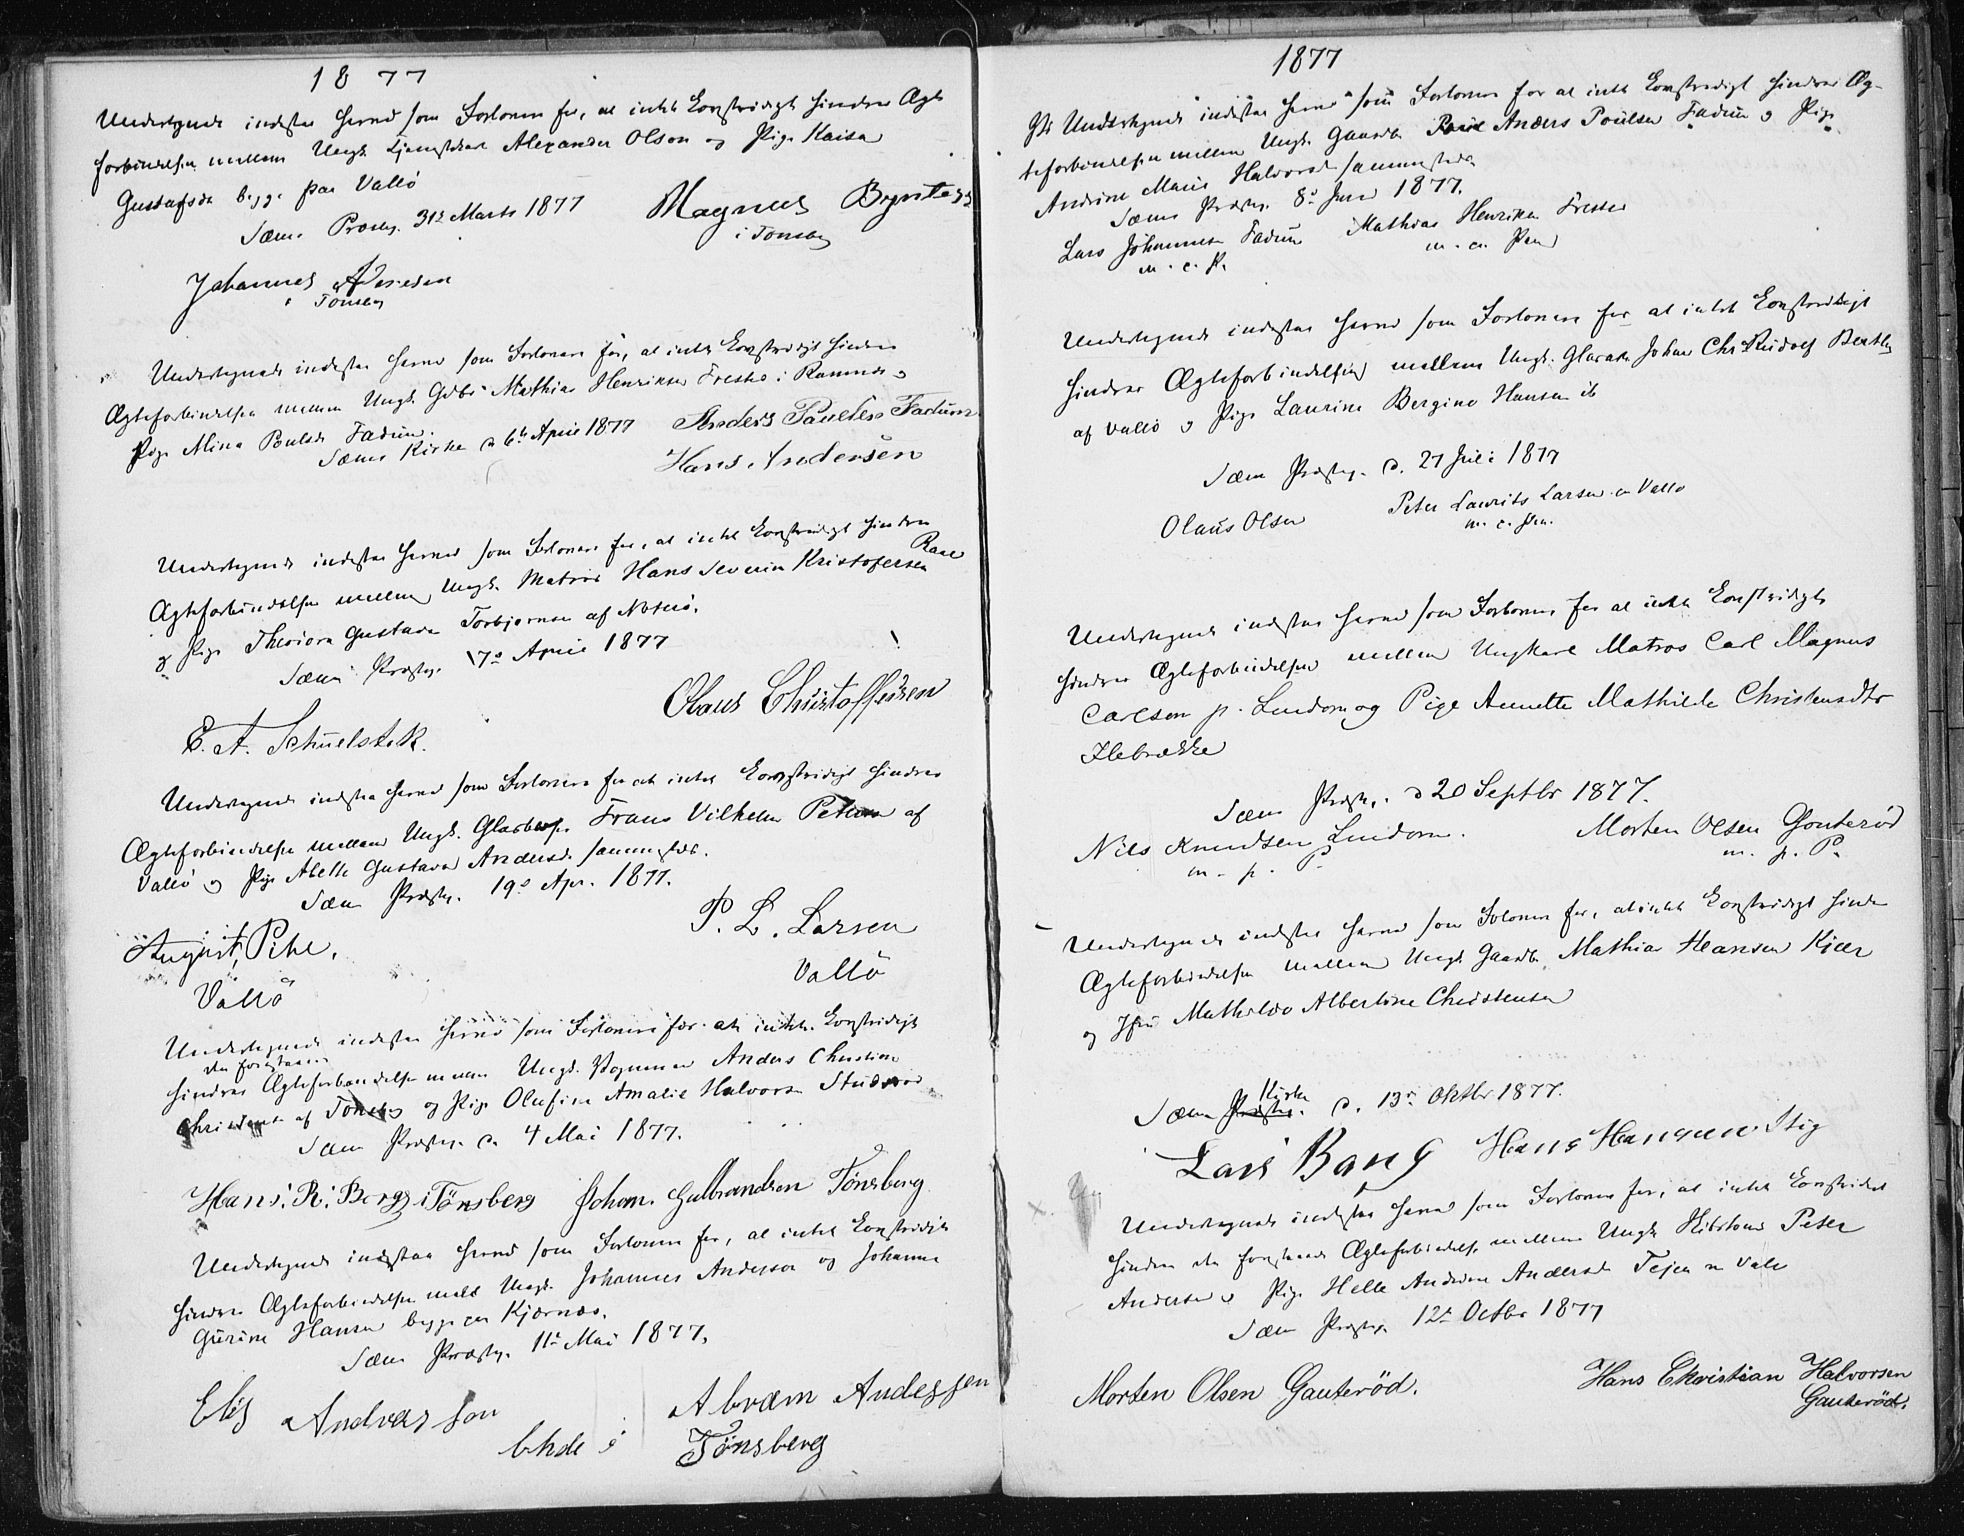 1877
Undertegnede indestaa herved som Forlovere for, at intet Lovstridigt hindrer Ægte
forbindelsen mellem Ungk. Alexander Olson og Pige Kaisa
Gustafsd. begge paa Vallö
Sems Præsteg. 31te Marts 1877
Magnus
i Tønsberg
Johannes
i Tønsberg
Undertegnede indestaa herved som Forlovere for, at intet Lovstridigt hindrer
Ægteforbindelsen mellem Ungk. Gdbr Mathias Henriksen Freste i Ramnes og
Pige Mina Poulsdr Fadum.
Sems Kirke d 6te April 1877
Anders Paulsen Fadum
Hans Andersen
Undertegnede indestaa herved som Forlovere for, at intet Lovstridigt hindrer
Ægteforbindelsen mellem Ungk. Matros Hans Severin Kristofersen
og Pige Theodora Gustava Torbjørnsen af Nøterø.
Sems Præsteg. 17de April 1877
Olaus Christoffersen
E. A. Schuelstok.
Undertegnede indestaa herved som Forlovere for at intet Lovstridigt hindrer
Ægteforbindelsen mellem Ungk. Frans Vilhelm Peterson af
Vallö og Pige Abelle Gustava Andersd. sammesteds.
Sem Præsteg. 19de Apr. 1877.
August Pihl.
Vallö
P. L. Larsen
Vallö
Undertegnede indestaa herved som Forlovere for at intet Lovstridigt
den foregaaende
hindrer Ægteforbindelsen mellem Ungk. Anders Christian
Christensen af Tønsberg og Pige Olufine Amalie Halvorsen
Sem Præsteg. d. 4 Mai 1877.
Hans. R. Berg i Tønsberg Johan. Gulbrandsen Tønsberg
Undertegnede indestaa herved som Forlovere for, at intet Lovstridigt
hindrer Ægteforbindelsen mell. Ungk. Johannes Anderson og Johanne
Gurine Hansen begge paa Kjærnæs.
Sem Præsteg. 11te Mai 1877.
Elis Andreasson
Abram Anderssen
begge i Tønsberg
1877
Undertegnede indestaa herved som Forlovere for at intet Lovstridigt hindrer Æg-
teforbindelsen mellem Ungk. Gaardbr Anders Poulsen Fadum og Pige
Andrine Marie Halvorsd. sammesteds
Sems Præsteg. 8de Juni 1877.
Lars Johannesen Fadum
m. p. P.
Mathias Henriksen Freste
m. p. Pen
Undertegnede indestaa herved som Forlovere for at intet Lovstridigt
hindrer Ægteforbindelsen mellem Ungk. Johan Chr. Rudolf
af Vallö og Pige Laurine Bergine Hansen ib
Sem Præsteg. d. 27 Juli 1877
Olaus Olsen
Peter Laurits Larsen Vallö
m. p. Pen.
Undertegnede indestaa herved som Forlovere for at intet Lovstridigt
hindrer Ægteforbindelsen mellem Ungkarl Matros Carl Magnus
Carlson p. Lindom og Pige Annette Mathilde Christensdtr
Ilebrække
Sem Præsteg. d 20 Septbr 1877.
Nils Knudsen Lindom.
m. p. P.
Morten Olsen Gouterød
m. p. P.
Undertegnede indestaa herved som Forlovere for, at intet Lovstridigt hindrer
Ægteforbindelsen mellem Ungk Gaardbr. Mathias Hansen Kjær
og Jfr. Mathilde Albertine Christensen
Sem Kirke d. 13de Oktbr 1877.
Lars Bang Hans Hansen Stig
Undertegnede indestaa herved som Forlovere for, at intet Lovstridigt
hindrer den forestaaende Ægteforbindelse mellem Ungk. Peter
Andersen og Pige Helle Andrine Andersd.
Sem Præsteg. 12te Octbr 1877
Morten Olsen Gauterød.
Hans Christian Halvorsen
Gauterød.